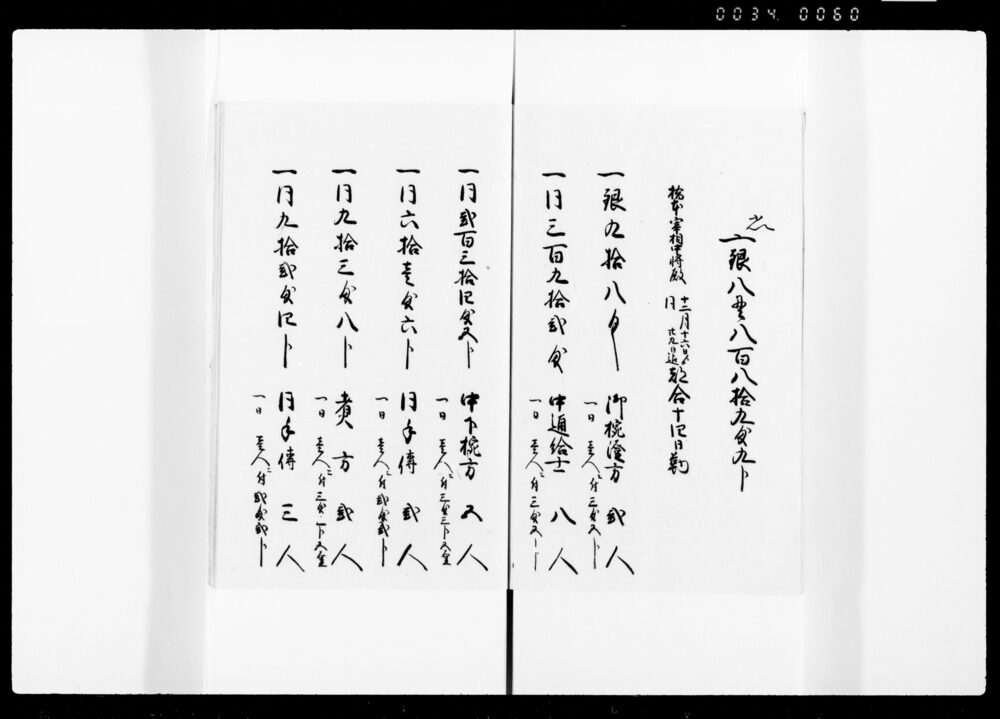 0034 0060
一銀八貫八百八拾九匁九卜
橋本宰相中将殿 十二月十六日より
同 廿九日迄 都合十四日勤
一銀九拾八匁 御椀渡方 弐人
一日 壱人ニ付三匁五卜
一同三百九拾弐匁 中通給士 八人
一日 壱人ニ付三匁五卜
一同弐百三拾四匁五卜 中下椀方 五人
一日 壱人ニ付三匁三卜五厘
一同六拾壱匁六卜 同手傳 弐人
一日 壱人ニ付弐匁弐卜
一同九拾三匁八卜 煮方 弐人
一日 壱人ニ付三匁三卜五厘
一同九拾弐匁四卜 同手傳 三人
一日 壱人ニ付弐匁弐卜